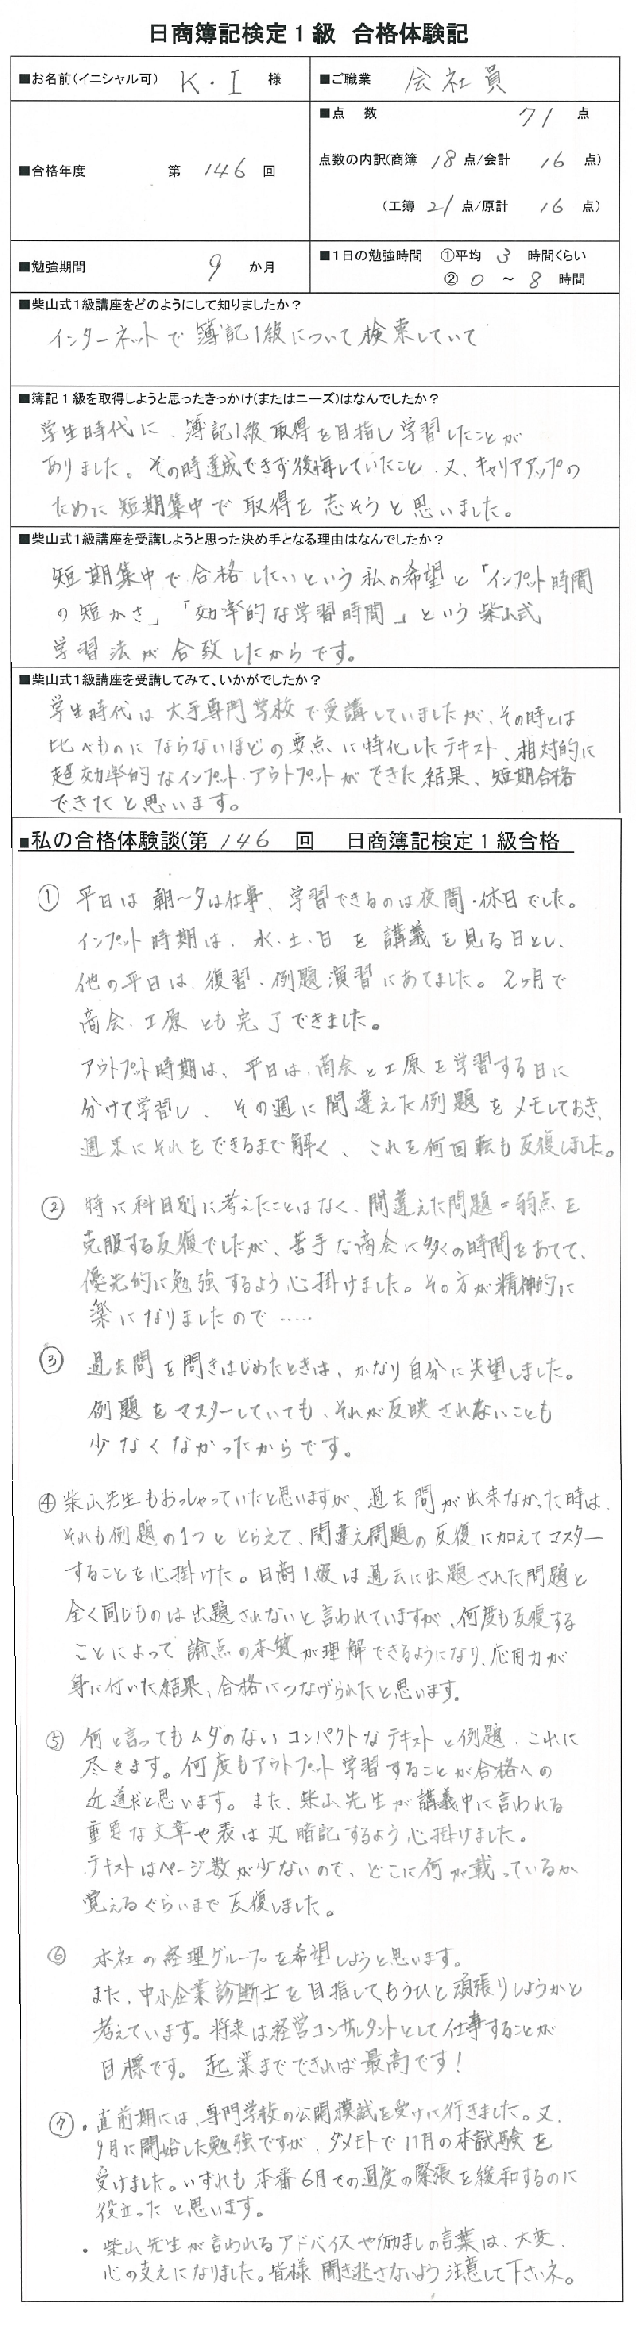 日商簿記検定1級 合格体験記
■お名前(イニシャル可) K.I 様
■ご職業 会社員
■合格年度 第 146 回
■点 数 71 点
点数の内訳(商簿 18 点/会計 16 点)
(工簿 21 点/原計 16 点)
■勉強期間 9 か月
■1日の勉強時間 ①平均 3 時間くらい
② 0 ~ 8 時間
■柴山式1級講座をどのようにして知りましたか?
インターネットで簿記1級について検索していて
■簿記1級を取得しようと思ったきっかけ(またはニーズ)はなんでしたか?
学生時代に、簿記1級取得を目指し学習したことが
ありました。その時達成できず後悔していたこと、又、キャリアアップの
ために短期集中で取得を志そうと思いました。
■柴山式1級講座を受講しようと思った決め手となる理由はなんでしたか?
短期集中で合格したいという私の希望と「インプット時間
の短かさ」「効率的な学習時間」という柴山式
学習法が合致したからです。
■柴山式1級講座を受講してみて、いかがでしたか?
学生時代は大手専門学校で受講していましたが、その時とは
比べものにならないほどの要点に特化したテキスト、相対的に
超効率的なインプット・アウトプットができた結果、短期合格
できたと思います。
■私の合格体験談(第 146 回 日商簿記検定1級合格
① 平日は朝~夕は仕事、学習できるのは夜間・休日でした。
インプット時期は、水・土・日を講義を見る日とし、
他の平日は、復習・例題演習にあてました。2ヶ月で
商会・工原とも完了できました。
アウトプット時期は、平日は、商会と工原を学習する日に
分けて学習し、その週に間違えた例題をメモしておき、
週末にそれをできるまで解く、これを何回転も反復しました。
② 特に科目別に考えたことはなく、間違えた問題=弱点を
克服する反復でしたが、苦手な商会に多くの時間をあてて、
優先的に勉強するよう心掛けました。その方が精神的に
楽になりましたので……
③ 過去問を問きはじめたときは、かなり自分に失望しました。
例題をマスターしていても、それが反映されないことも
少なくなかったからです。
④ 柴山先生もおっしゃっていたと思いますが、過去問が出来なかった時は、
それも例題の1つととらえて、間違え問題の反復に加えてマスター
することを心掛けた。日商1級は過去に出題された問題と
全く同じものは出題されないと言われていますが、何度も反復する
ことによって論点の本質が理解できるようになり、応用力が
身に付いた結果、合格につなげられたと思います。
⑤ 何と言ってもムダのないコンパクトなテキストと例題、これに
尽きます。何度もアウトプット学習することが合格への
近道だと思います。また、柴山先生が講義中に言われる
重要な文章や表は丸暗記するよう心掛けました。
テキストはページ数が少ないので、どこに何が載っているか
覚えるぐらいまで反復しました。
⑥ 本社の経理グループを希望しようと思います。
また、中小企業診断士を目指してもうひと頑張りしようかと
考えています。将来は経営コンサルタントとして仕事することが
目標です。起業までできれば最高です!
⑦ ・直前期には、専門学校の公開模試を受けに行きました。又、
9月に開始した勉強ですが、ダメモトで11月の本試験を
受けました。いずれも本番6月での過度の緊張を緩和するのに
役立ったと思います。
・柴山先生が言われるアドバイスや励ましの言葉は、大変、
心の支えになりました。皆様聞き逃さないよう注意して下さいネ。